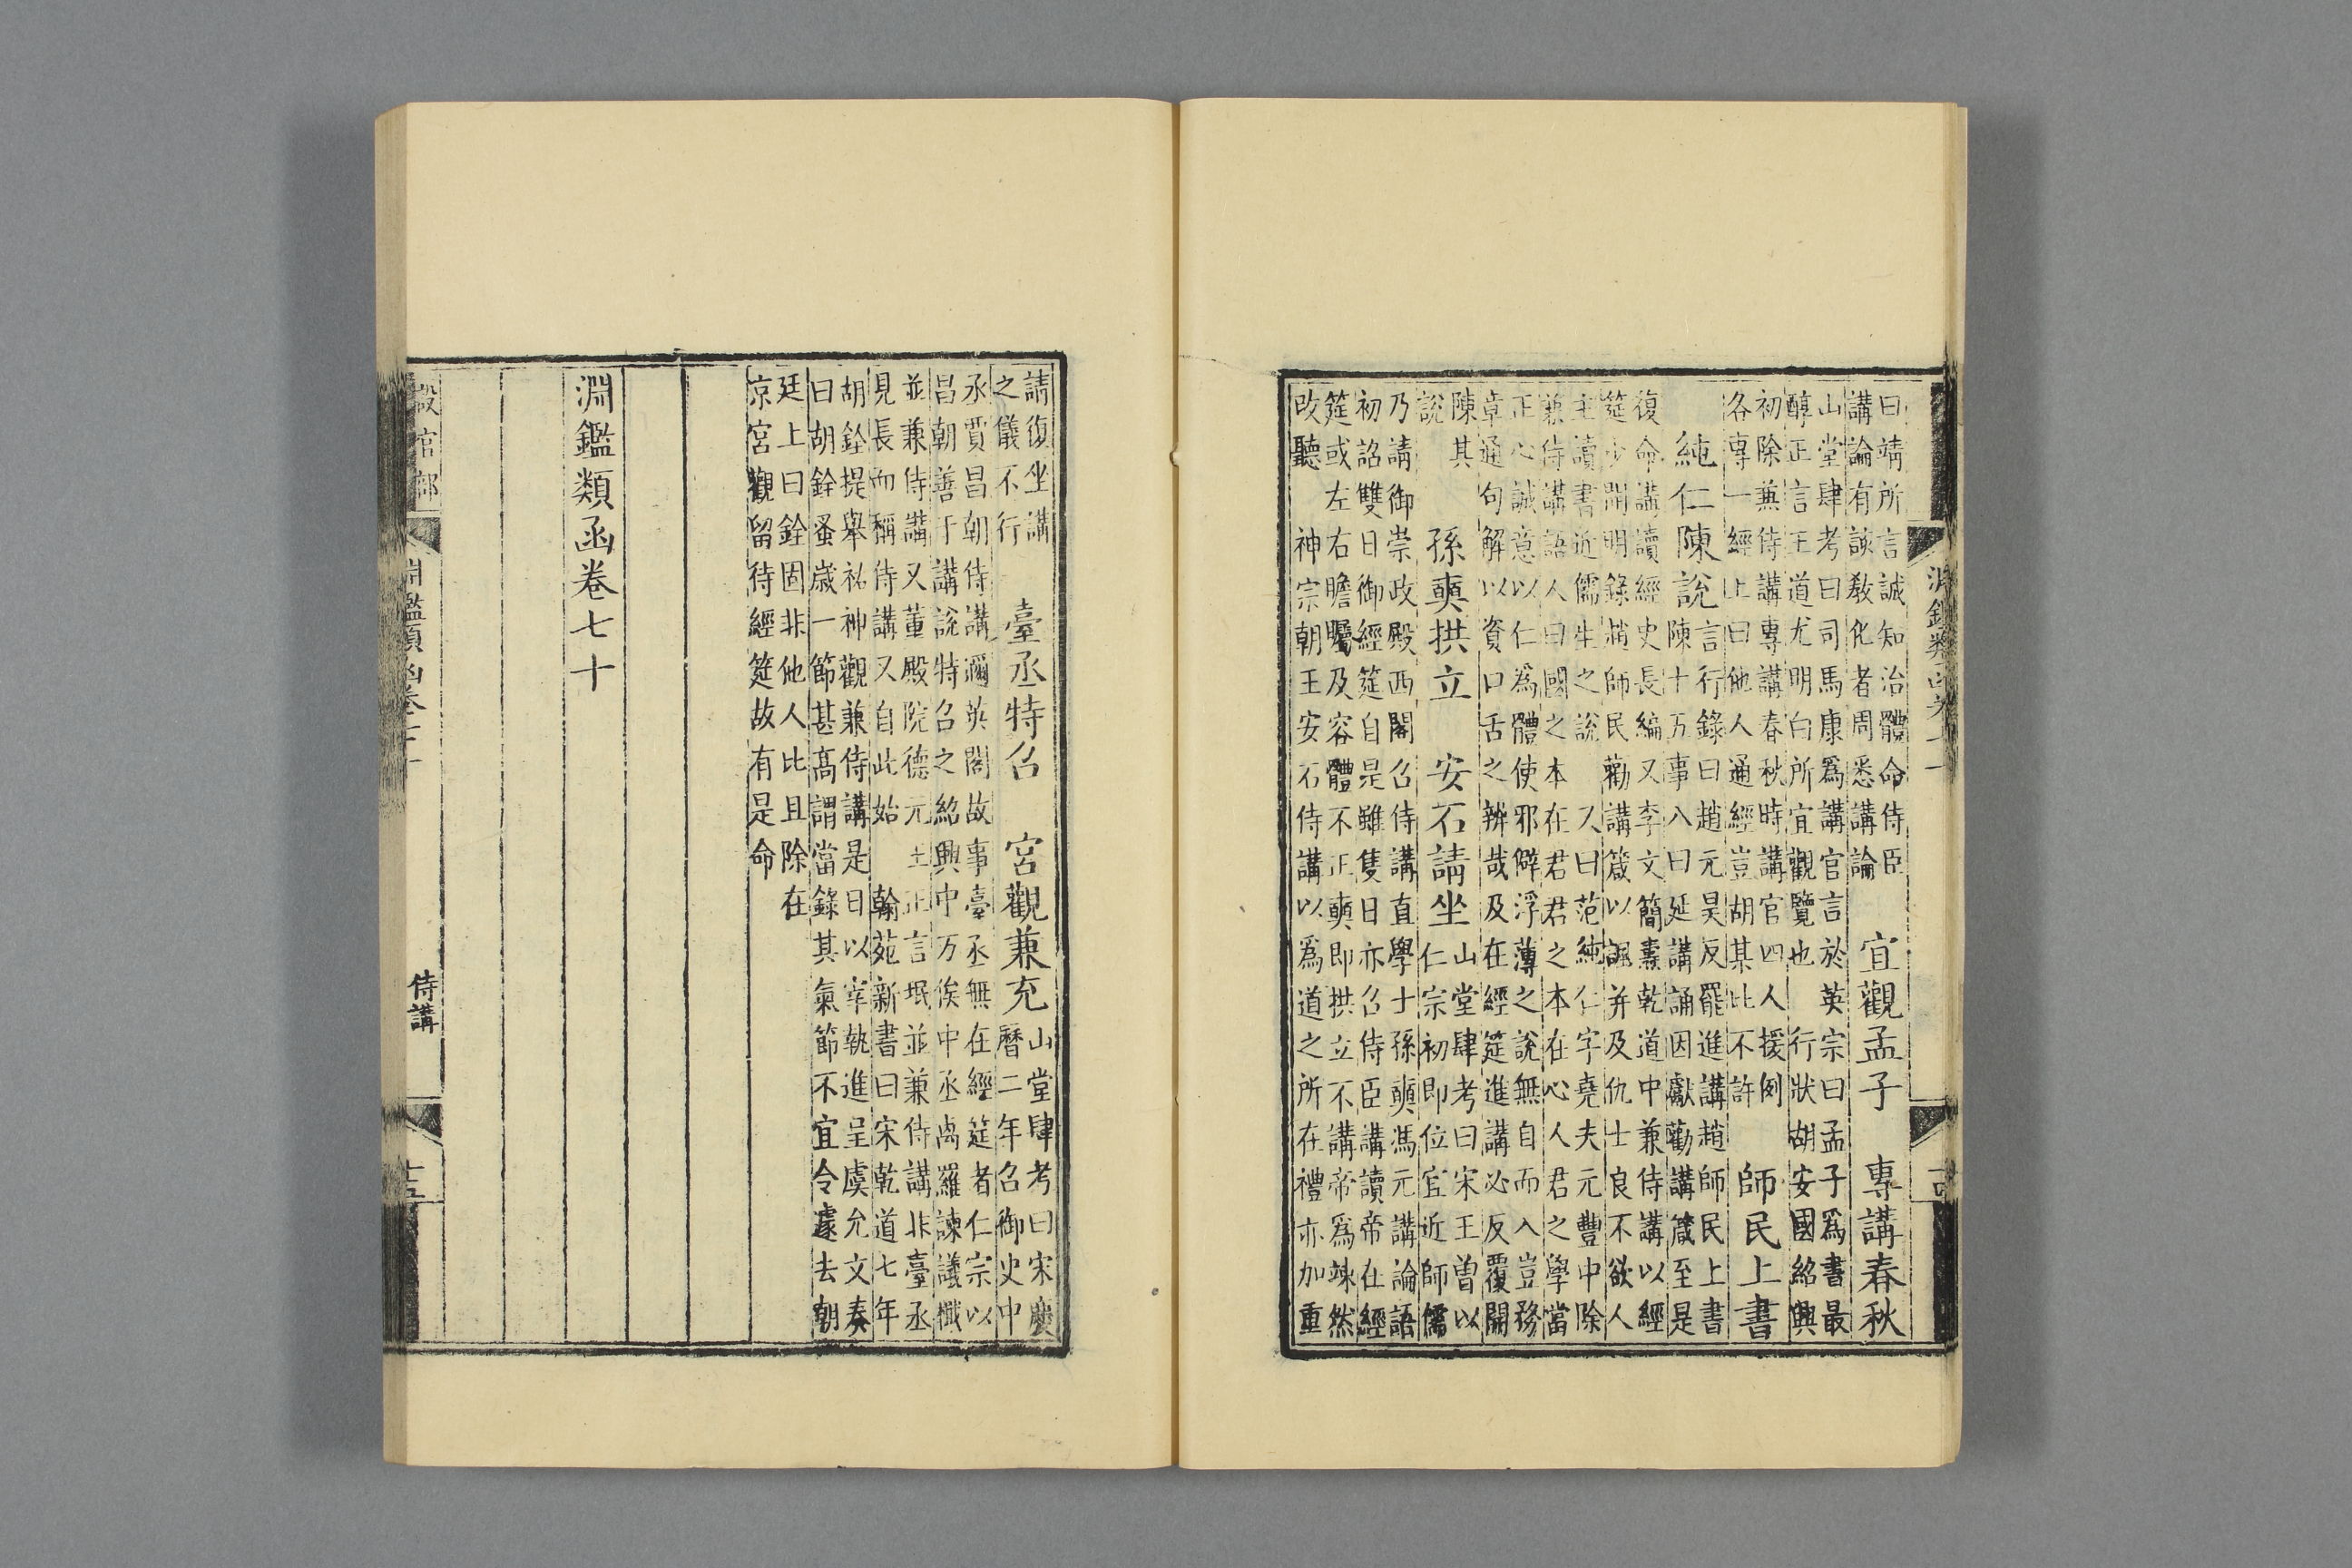 曰靖所言誠知治體命侍臣
講論有談教化者周悉講論
宜觀孟子　專講春秋
山堂肆考曰司馬康爲講官言於英宗曰孟子爲書最
醇正言王道尤明白所宜觀覽也　行狀胡安國紹興
初除兼侍講專講春秋時講官四人援例
各專一經上曰他人通經豈胡某比不許
師民上書
純仁陳說
言行錄曰趙元昊反罷進講趙師民上書
陳十五事八曰延講誦因獻勸講箴至是
復命講讀經史長編又李文簡燾乾道中兼侍講以經
筵少開明錄趙師民勸講箴以諷并及仇士良不欲人
主讀書近儒生之說　又曰范純仁字堯夫元豐中除
兼侍講語人曰國之本在君君之本在心人君之學當
正心誠意以仁爲體使邪僻浮薄之說無自而入豈務
章通句解以資口舌之辨哉及在經筵進講必反覆開
陳其
說
孫奭拱立　安石請坐
山堂肆考曰宋王曾以
仁宗初即位宜近師儒
乃請御崇政殿西閣召侍講直學士孫奭馮元講論語
初詔雙日御經筵自是雖隻日亦召侍臣講讀帝在經
筵或左右瞻矚及容體不正奭即拱立不講帝爲竦然
改聽　神宗朝王安石侍講以爲道之所在禮亦加重
請復坐講
之儀不行
臺丞特召　宮觀兼充
山堂肆考曰宋慶
曆二年召御史中
丞賈昌朝侍講邇英閣故事臺丞無在經筵者仁宗以
昌朝善于講說特召之紹興中万俟中丞卨羅諫議檝
並兼侍講又董殿院德元王正言珉並兼侍講非臺丞
見長而稱侍講又自此始　翰苑新書曰宋乾道七年
胡銓提舉祐神觀兼侍講是日以宰執進呈虞允文奏
曰胡銓蚤歲一節甚高謂當錄其氣節不宜令遽去朝
廷上曰銓固非他人比且除在
京宮觀留待經筵故有是命
淵鑑類函卷七十
侍講